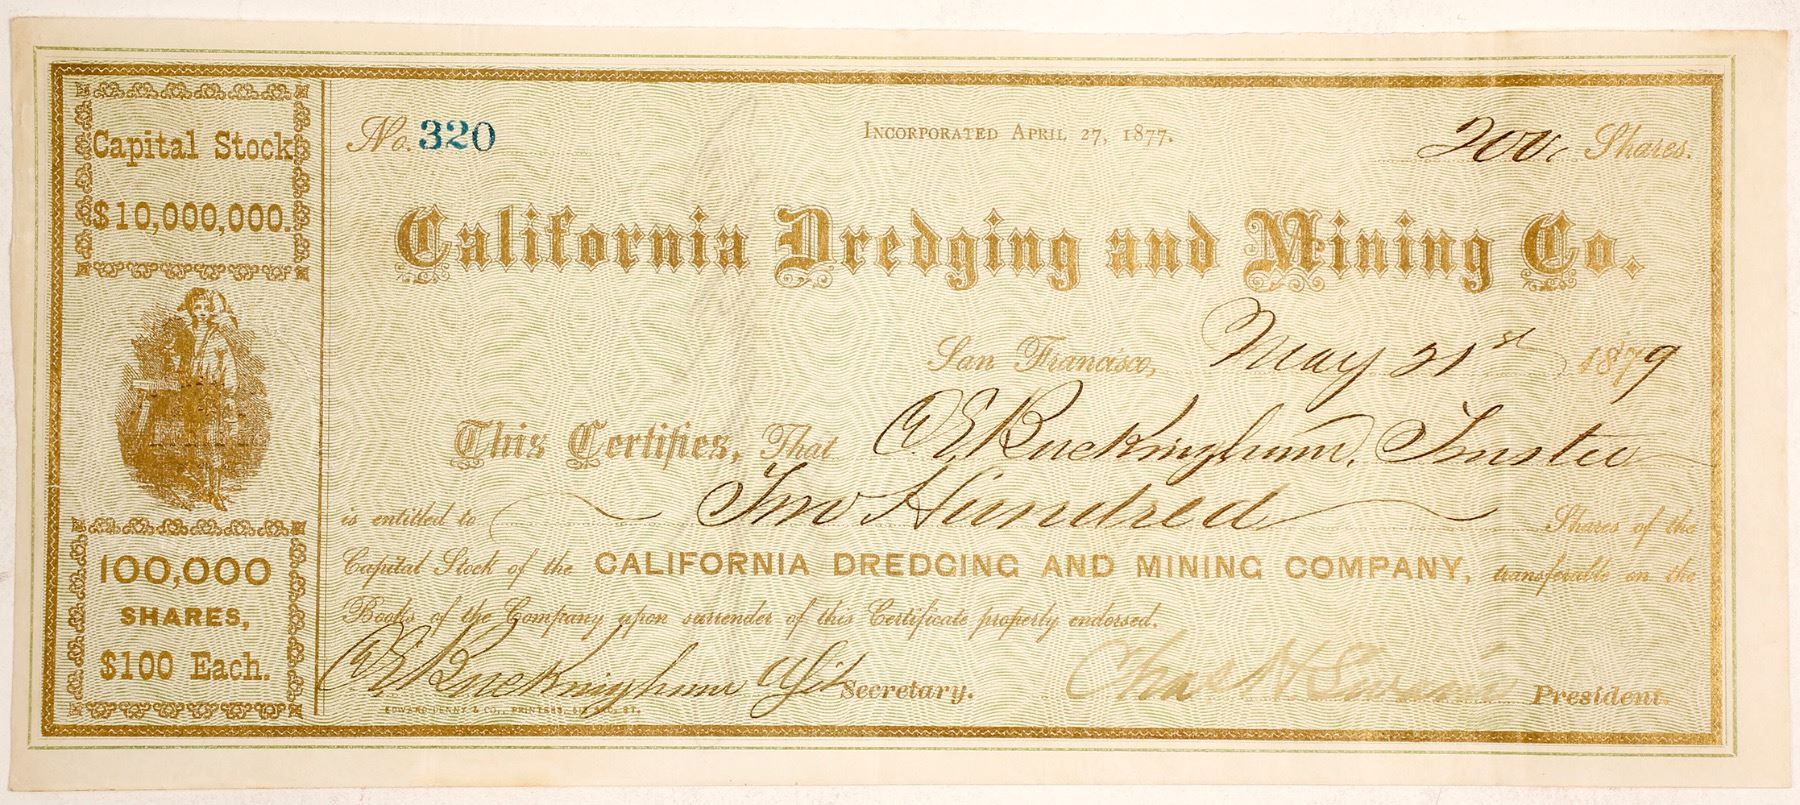 Capital Stock
$10,000,000.
100,000
SHARES,
$100 Each.
No. 320
INCORPORATED APRIL 27, 1877.
200 Shares.
California Dredging and Mining Co.
San Francisco, May 21st 1879
This Certifies, That C. E. Buckingham, Trustee
is entitled to Two Hundred Shares of the
Capital Stock of the CALIFORNIA DREDGING AND MINING COMPANY, transferable on the
Books of the Company upon surrender of this Certificate properly endorsed.
Buckingham Secretary.
Chas H Swain President.
EDWARD DENNY & CO., PRINTERS,